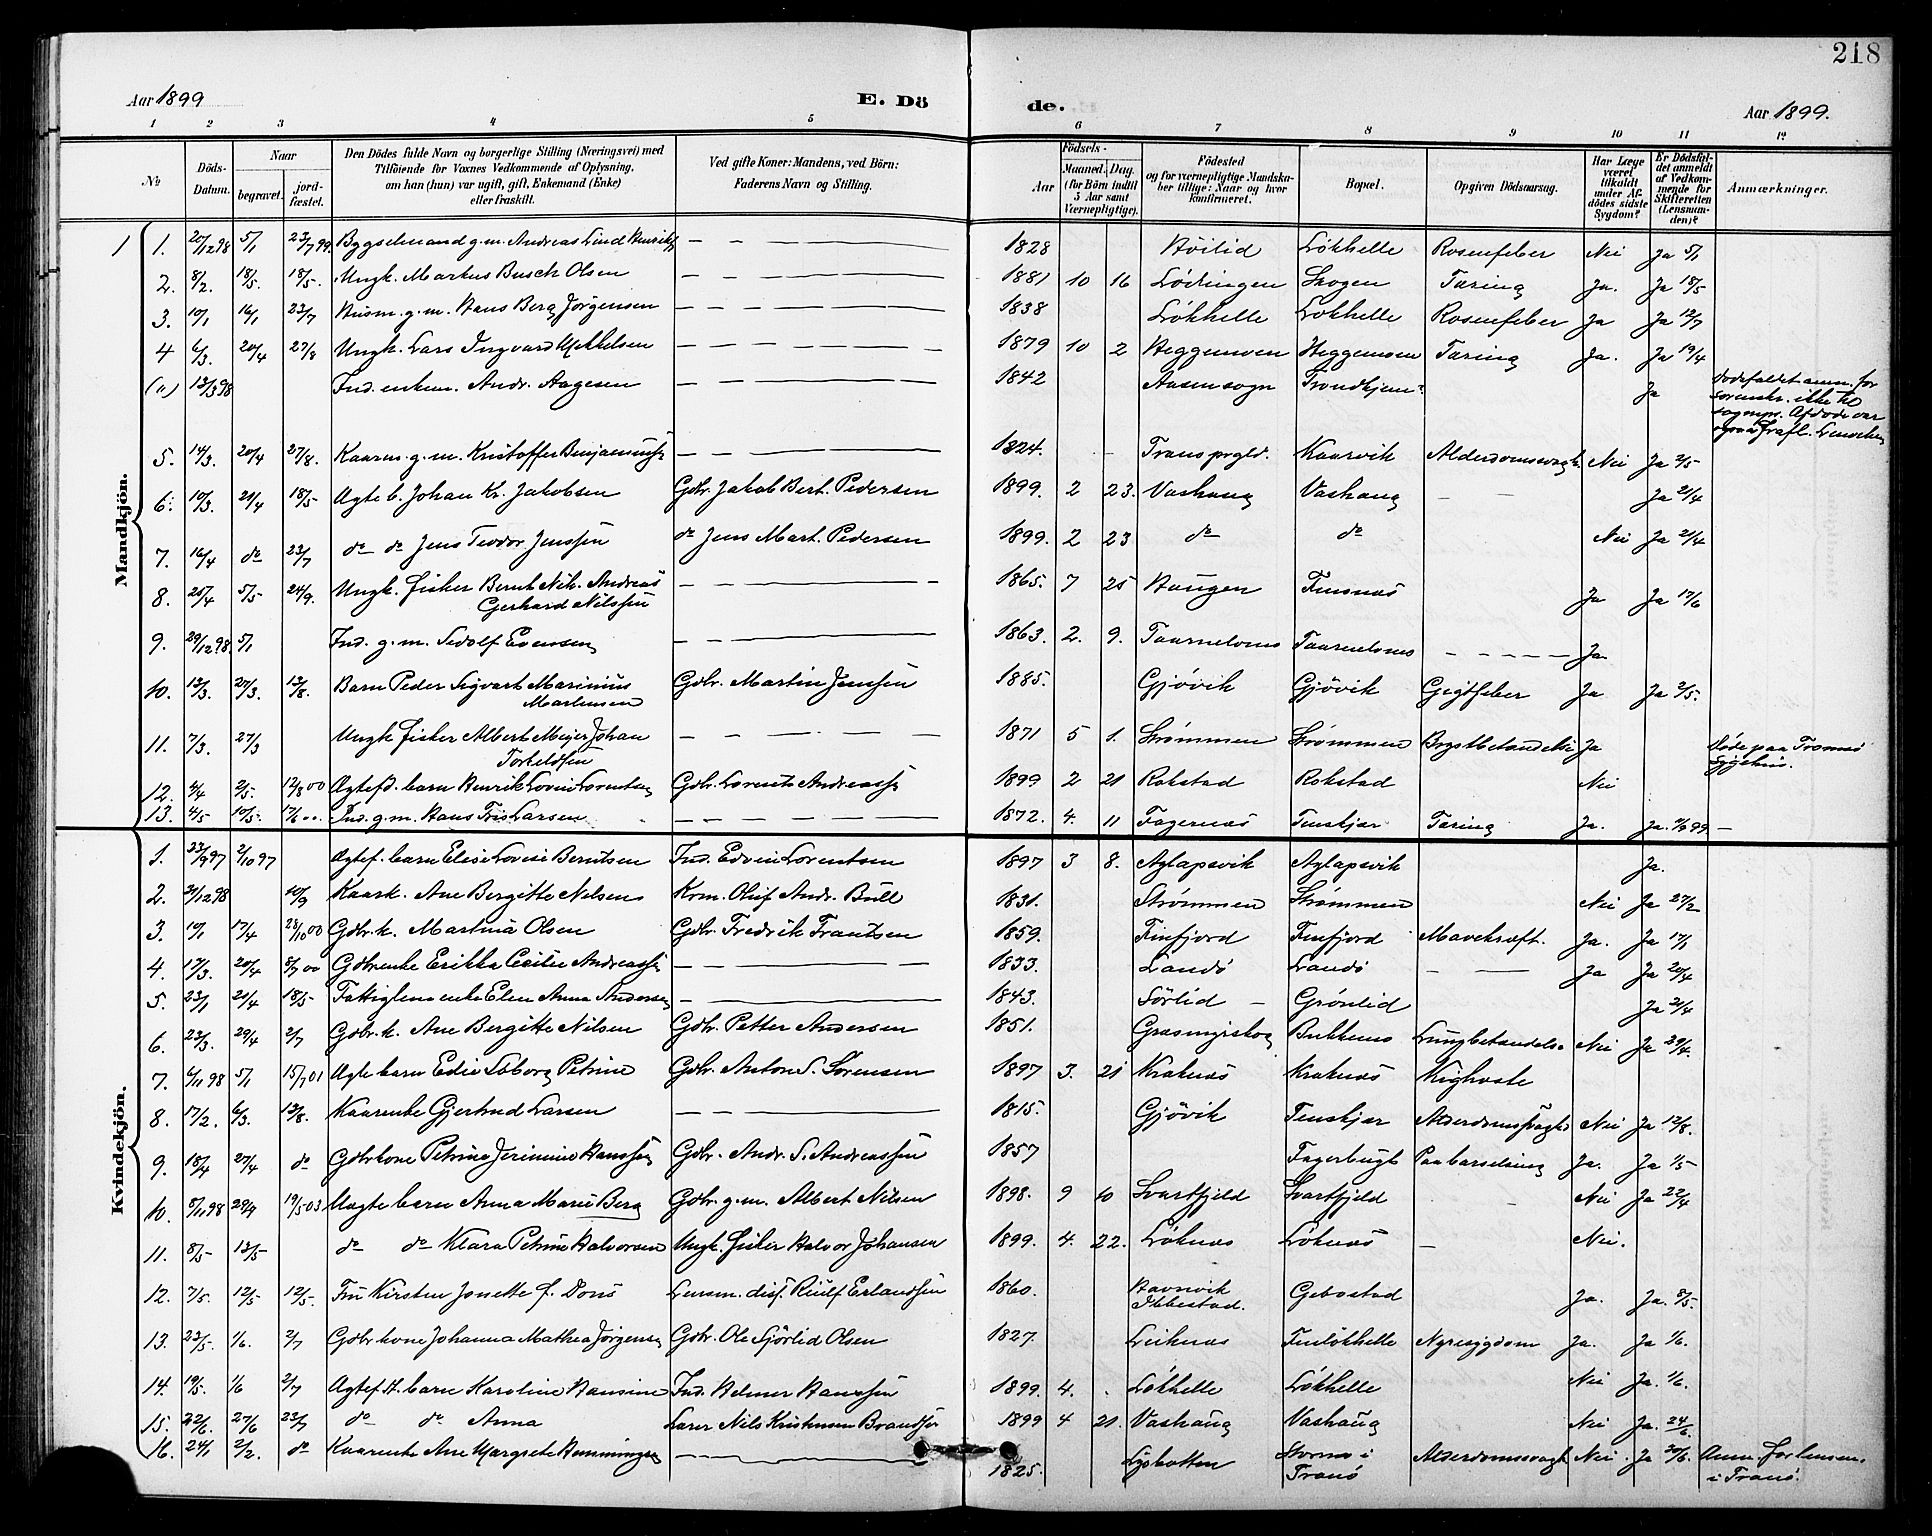 218
Aar 1899 E. Dö de. Aar 1899.
1 2 3 4 5 6 7 8 9 10 11 12
No Döds-Datum. Naar begravet. jord-fæstet. Den Dödes fulde Navn og borgerlige Stilling (Næringsvei) med Tilföiende for Voxnes Vedkommende af Oplysning, om han (hun) var ugift, gift, Enkemand (Enke) eller fraskilt. Ved gifte Koner: Mandens, ved Börn: Faderens Navn og Stilling. Födsels- Aar Maaned. Dag. (for Börn indtil 5 Aar samt Værnepligtige). Födested og for værnepligtige Mandskaber tillige: Naar og hvor konfirmeret. Bopæl. Opgiven Dödsaarsag. Har Læge været tilkaldt under Afdödes sidste Sygdom? Er Dödsfaldet anmeldt af Vedkommende for Skifteretten (Lensmanden)? Anmærkninger.
Mandkjön.
1. 20/12 98 5/1 23/7 99. Bygselmand g.m. Andreas Lind Henriks. 1828 Høilid Løkhelle Rosenfeber Nei Ja 5/1
2. 8/2. 18/5. 18/5. Ungk. Markus Busch Olsen 1881 10 16 Lødingen Skogen Tæring Ja. Ja 18/5
3. 10/1 16/1 23/7 Husm. g.m. Hans Berg Jørgensen 1838 Løkhelle Løkhelle Rosenfeber Ja Ja 12/7
4 6/3. 20/4 27/8 Ungk. Lars Ingvard Mikkelsen 1879 10 2 Heggemoen Heggemoen Tæring Ja. Ja 19/4
(a) 13/3 98 Ind. enkem. Andr. Aagesen 1842 Aasen sogn Trondhjem? Ja Dødsfaldet anm. for sorenskr. ikke til sognepr. Afdøde var
5. 14/3. 20/4 27/8. Kaarm. g.m. Kristoffer Benjamins. 1824. Tranø prgld. Kaarvik Alderdomssvagh. Nei Ja 2/5
6. 10/3. 21/4 18/5 Ægte b. Johan Kr. Jakobsen Gdbr. Jakob Bert. Pedersen 1899. 2 23. Vashaug Vashaug Ja 21/4
7. 16/4 do 23/7 do do Jens Teodor Jenssen do Jens Mart. Pedersen 1899. 2 23 do do Nei Ja 21/4
8. 25/4 5/5 24/9. Ungk. fisker Bernt Nik. Andreas Gerhard Nilssen 1865. 7 25 Haugen Finsnæs Ja Ja 17/6
9. 29/12 98. 5/1 Ind. g.m. Sedolf Evensen 1863. 2. 9. Taarnelvmo Taarnelvmo Ja.
10. 13/3. 27/3. 13/8. Barn Peder Sigvart Marinius Martensen Gdbr. Martin Jenssen 1885. Gjövik Gjövik Gigtfeber Ja Ja 2/5.
11. 7/3. 27/3 Ungk fisker Albert Meyer Johan Torkeldsen 1871 5 1. Strømmen Strømmen Brystbetændelse Ja Døde paa Tromsø sygehus.
12. 4/4 2/5. 12/8 00 Ægtefd. barn Henrik Lovin Lorentsen Gdbr. Lorents Andreass. 1899 2 21 Rokstad Rokstad Nei
13. 4/5 10/5. 17/6 00. Ind. g.m. Hans Friis Larsen 1872. 4. 11 Fagernæs Finskjær Tæring Ja. Ja. 99
Kvindekjön.
1. 23/9 97 2/10 97 Ægtef. barn Elise Lovise Berntsen Ind. Edvin Lorentsen 1897 3 8. Aglapsvik Aglapsvik Ja.
2. 31/12 98 10/9 Kaark. Ane Bergitte Nilsen Krm. Oluf Andr. Bull 1831. Strømmen Strømmen Nei Ja 27/2
3. 10/1 17/4 28/10 00 Gdbr.k. Martina Olsen Gdbr. Fredrik Frantsen 1859. Finfjord Finfjord Mavekræft. Ja. Ja 17/1
4. 17/3. 20/4 8/7 00 Gdbrenke Erikka Cecilie Andreass. 1833. Landö Landö Ja Ja 20/4
5. 23/1 21/4 18/5 Fattiglems enke Elen Anna Andersen 1843. Sörlid Grönlid Ja 21/4
6. 23/3. 29/4 2/7 Gdbr.k. Ane Bergitte Nilsen Gdbr. Petter Andersen 1851. Græsmyrskog Bukkemo Lungbetændelse Nei Ja 29/4.
7. 6/11 98 5/1 15/7 01 Ægte barn Edie Solborg Petrine Gdbr. Anton S. Sørensen 1897 3. 21 Kraknæs Kraknæs Kighoste
8. 17/2. 6/3. 13/8. Kaarenke Gjertrud Larsen 1815. Gjövik Finskjær Alderdomssvaghd Nei Ja 12/8.
9. 18/4 27/4 do Gdbrkone Petrine Jerimine Hanssen Gdbr. Andr. S. Andreassen 1857 Fagerbugt Paa barselseng Ja. Ja 1/5
10. 8/11 98 29/4 19/5 03 Uægte barn Anna Marie Berg Gdbr. g.m. Albert Nilsen 1898. 9 10 Svartfjeld Svartfjeld Nei Ja 22/4
11. 8/5 13/5 do do Klara Petrine Halvorsen Ungk. fisker Halvor Johansen 1899. 4. 22. Löknæs Löknæs Nei.
12. 7/5. 12/5 12/5. Fru Kirsten Jonette f. Dons Lensm. disp. Riulf Erlandsen 1860. Havnvik Ibbestad. Gebostad Ja. Ja. 8/5.
13. 23/5. 1/6. 2/7 Gdbrkone Johanna Mathea Jørgensen Gdbr. Ole Sjörlid Olsen 1827. Leiknæs Finlökhelle Nyresygdom Ja. Ja 1/6.
14. 19/5. 1/6 2/7 Ægtef. H. barn Karoline Hansine Ind. Helmer Hanssen 1899. 4. Lökhelle Lökhelle Nei Ja. 1/6.
15. 22/6. 27/6 23/7 do do Anna Lærer Nils Kristensen Brandsø 1899 4 21. Vashaug Vashaug Nei Ja. 24/6
16. 24/1 2/2. do Kaarenke Ane Margrete Henningsen 1825. Lysbotten i Tranö Alderdomssvagh Nei. Ja 30/6. Anm. for lensm. i Tranö.